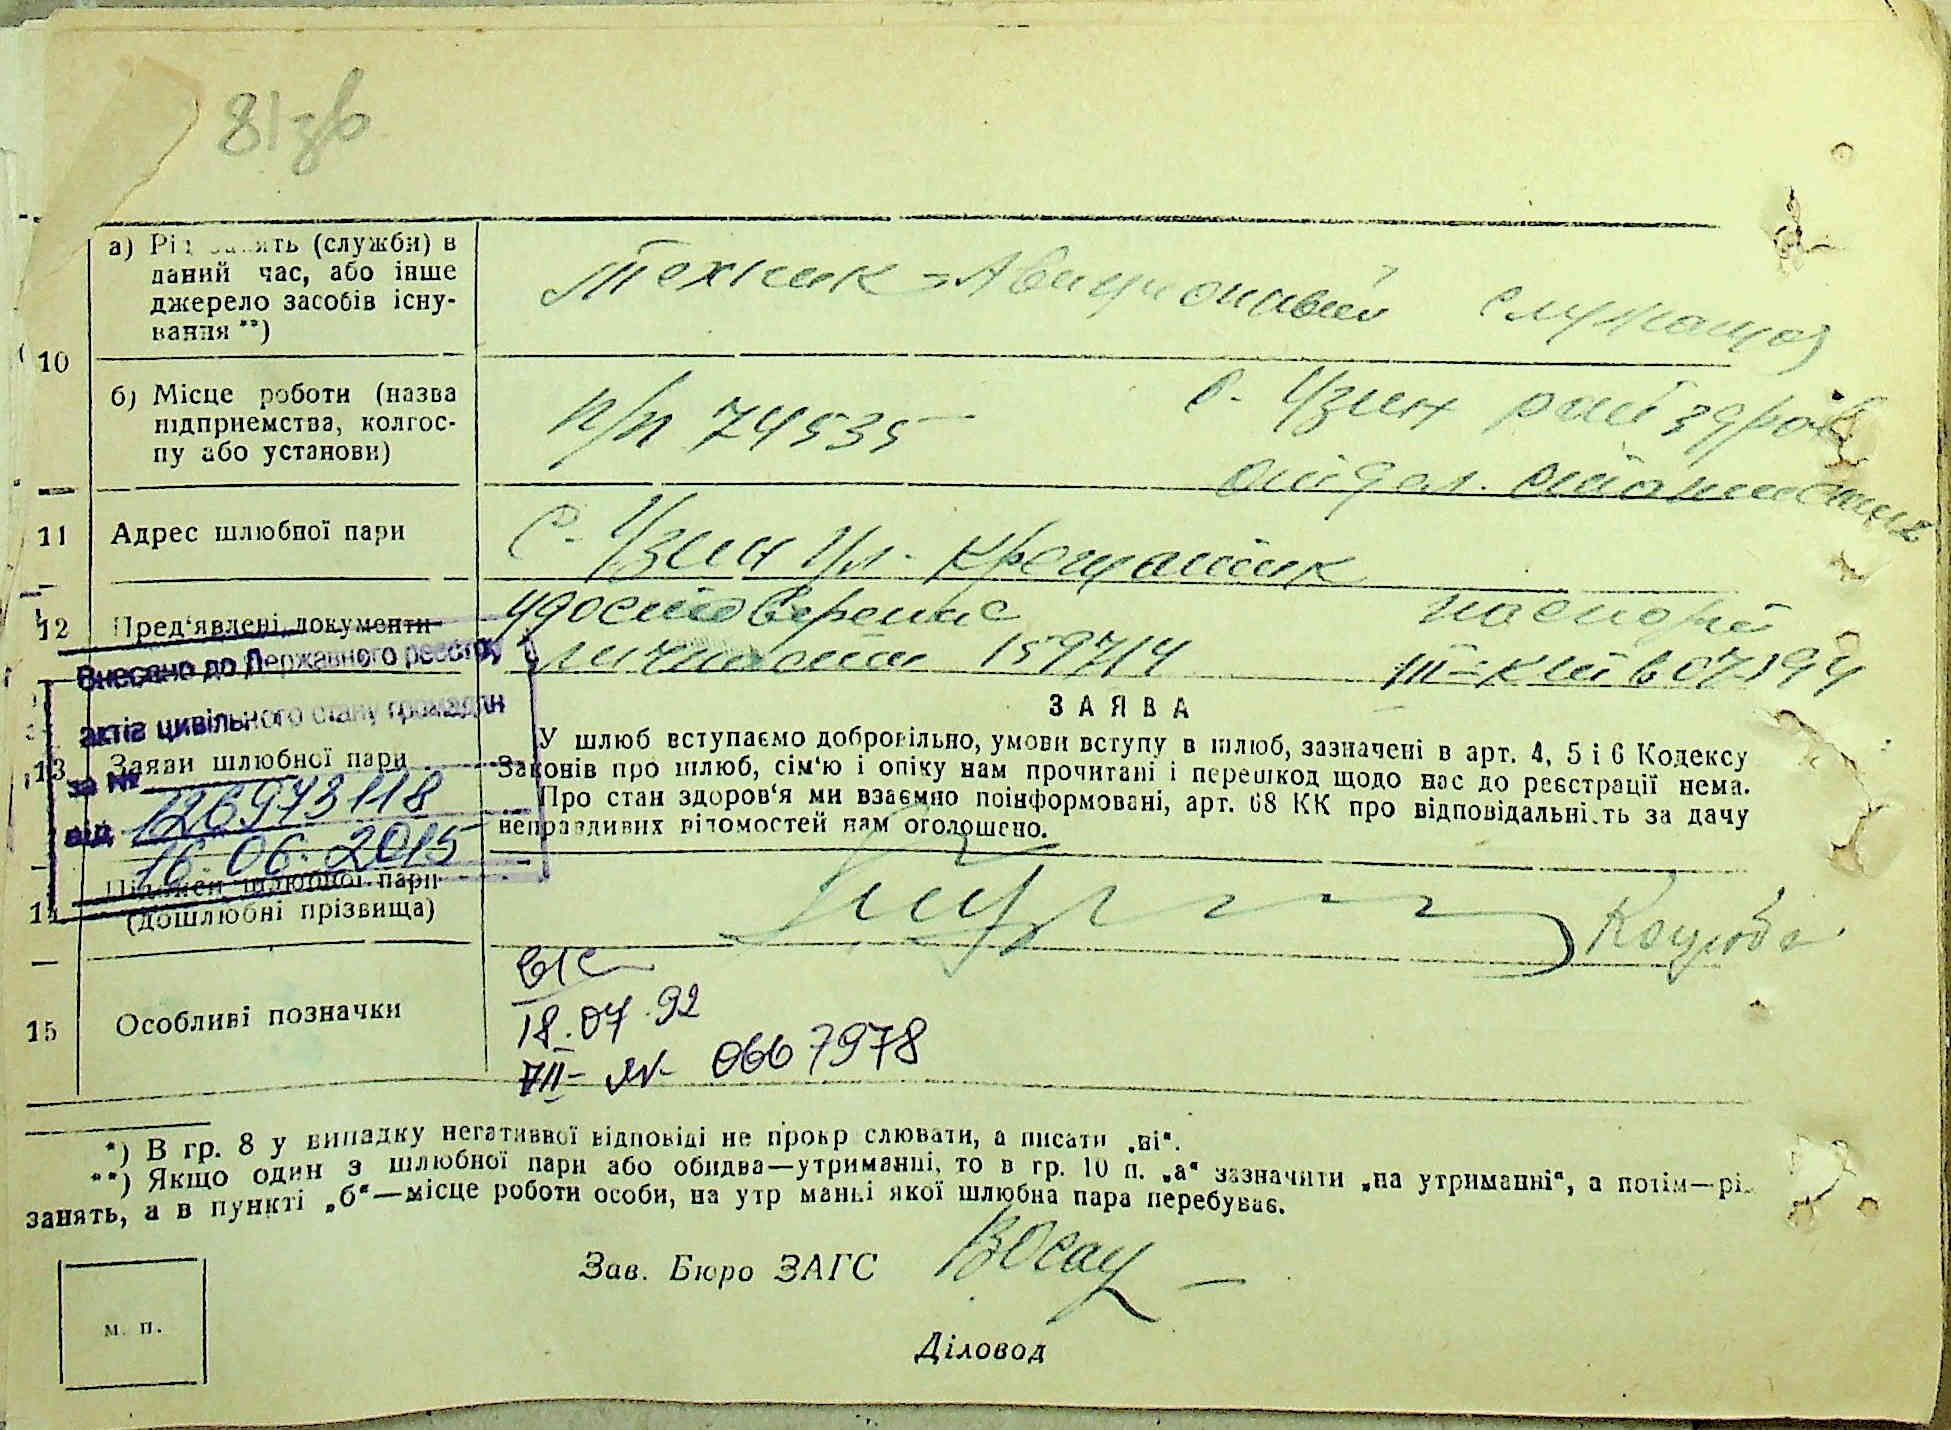 81зв
а) Рід занять (служби) в
даний час, або інше
джерело засобів існу-
вання **)
Техник-Авиционный служащая
10
б) Місце роботи (назва
підприємства, колгос-
пу або установи)
п/п 74535
с. Узин райздрав
отдел. статистик
11 Адрес шлюбної пари
с. Узин ул. Крещатик
12 Пред'явлені документи
удостоверение
личности 159714
паспорт
III-КШ 607194
Внесено до Державного реєстру
актів цивільного стану громадян
за № 126973118
від 16.06.2015
13 Заяви шлюбної пари
ЗАЯВА
У шлюб вступаємо добровільно, умови вступу в шлюб, зазначені в арт. 4, 5 і 6 Кодексу
Законів про шлюб, сім'ю і опіку нам прочитані і перешкод щодо нас до реєстрації нема.
Про стан здоров'я ми взаємно поінформовані, арт. 68 КК про відповідальність за дачу
неправдивих відомостей нам оголошено.
14 Підписи шлюбної пари
(дошлюбні прізвища)
Коцюба
15 Особливі позначки
18.07.92
VII- 0667978
*) В гр. 8 у випадку негативної відповіді не прокреслювати, а писати „ні“.
**) Якщо один з шлюбної пари або обидва—утриманні, то в гр. 10 п. „а“ зазначити „на утриманні“, а потім—рід
занять, а в пункті „б“—місце роботи особи, на утриманні якої шлюбна пара перебуває.
Зав. Бюро ЗАГС
Діловод
м. п.